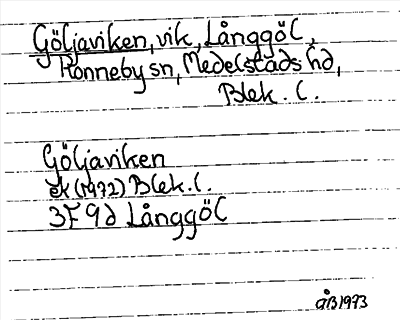 Göljaviken, vik, Långgöl,
Ronneby sn, Medelstads hd,
Blek. l.
Göljaviken
ek (1972) Blek. l.
3F 9d Långgöl
ÅB 1993